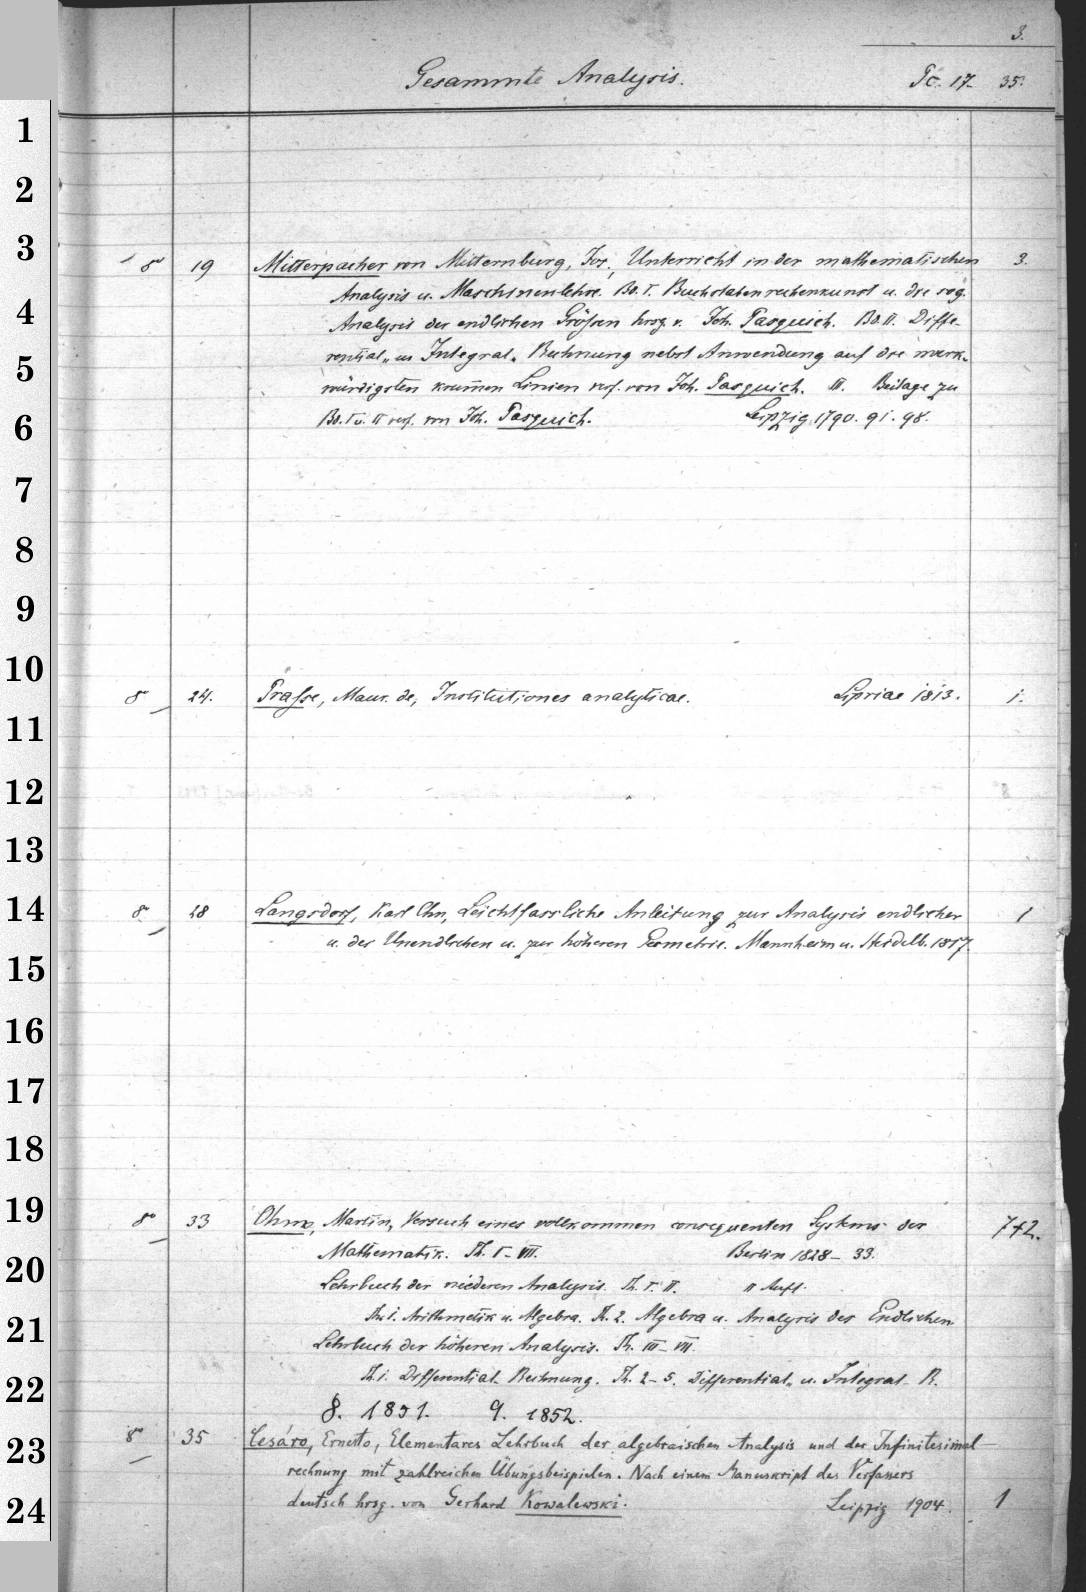 3.
Gesammte Analysis. Gc. 17. 35.
8° 19 Mitterpacher von Mitternburg, Jos., Unterricht in der mathematischen 3.
Analysis u. Maschinenlehre. Bd. I. Buchstabenrechenkunst u. die sog.
Analysis der endlichen Größen hrsg. v. Joh. Pasquich. Bd. II. Diffe-
rential- u. Integral-Rechnung nebst Anwendung auf die merk-
würdigsten krummen Linien verf. von Joh. Pasquich. III. Beilage zu
Bd. I u. II verf. von Joh. Pasquich. Leipzig 1790. 91. 98.
8° 24. Prasse, Maur. de, Institutiones analyticae. Lipsiae 1813. 1.
8° 28 Langsdorf, Karl Chn, Leichtfassliche Anleitung zur Analysis endlicher 1
u. des Unendlichen u. zur höheren Geometrie. Mannheim u. Heidelb. 1817.
8° 33 Ohm, Martin, Versuch eines vollkommen consequenten Systems der 7+2.
Mathematik. Th. I–VII. Berlin 1828–33.
Lehrbuch der niederen Analysis. Th. I. II. II Aufl.
Th. 1. Arithmetik u. Algebra. Th. 2. Algebra u. Analysis des Endlichen
Lehrbuch der höheren Analysis. Th. III–VII.
Th. 1. Differential-Rechnung. Th. 2–5. Differential- u. Integral-R.
8. 1851. 9. 1852.
8° 35 Cesáro, Ernesto, Elementares Lehrbuch der algebraischen Analysis und der Infinitesimal-
rechnung mit zahlreichen Übungsbeispielen. Nach einem Manuskript des Verfassers
deutsch hrsg. von Gerhard Kowalewski. Leipzig 1904. 1
1
2
3
4
5
6
7
8
9
10
11
12
13
14
15
16
17
18
19
20
21
22
23
24